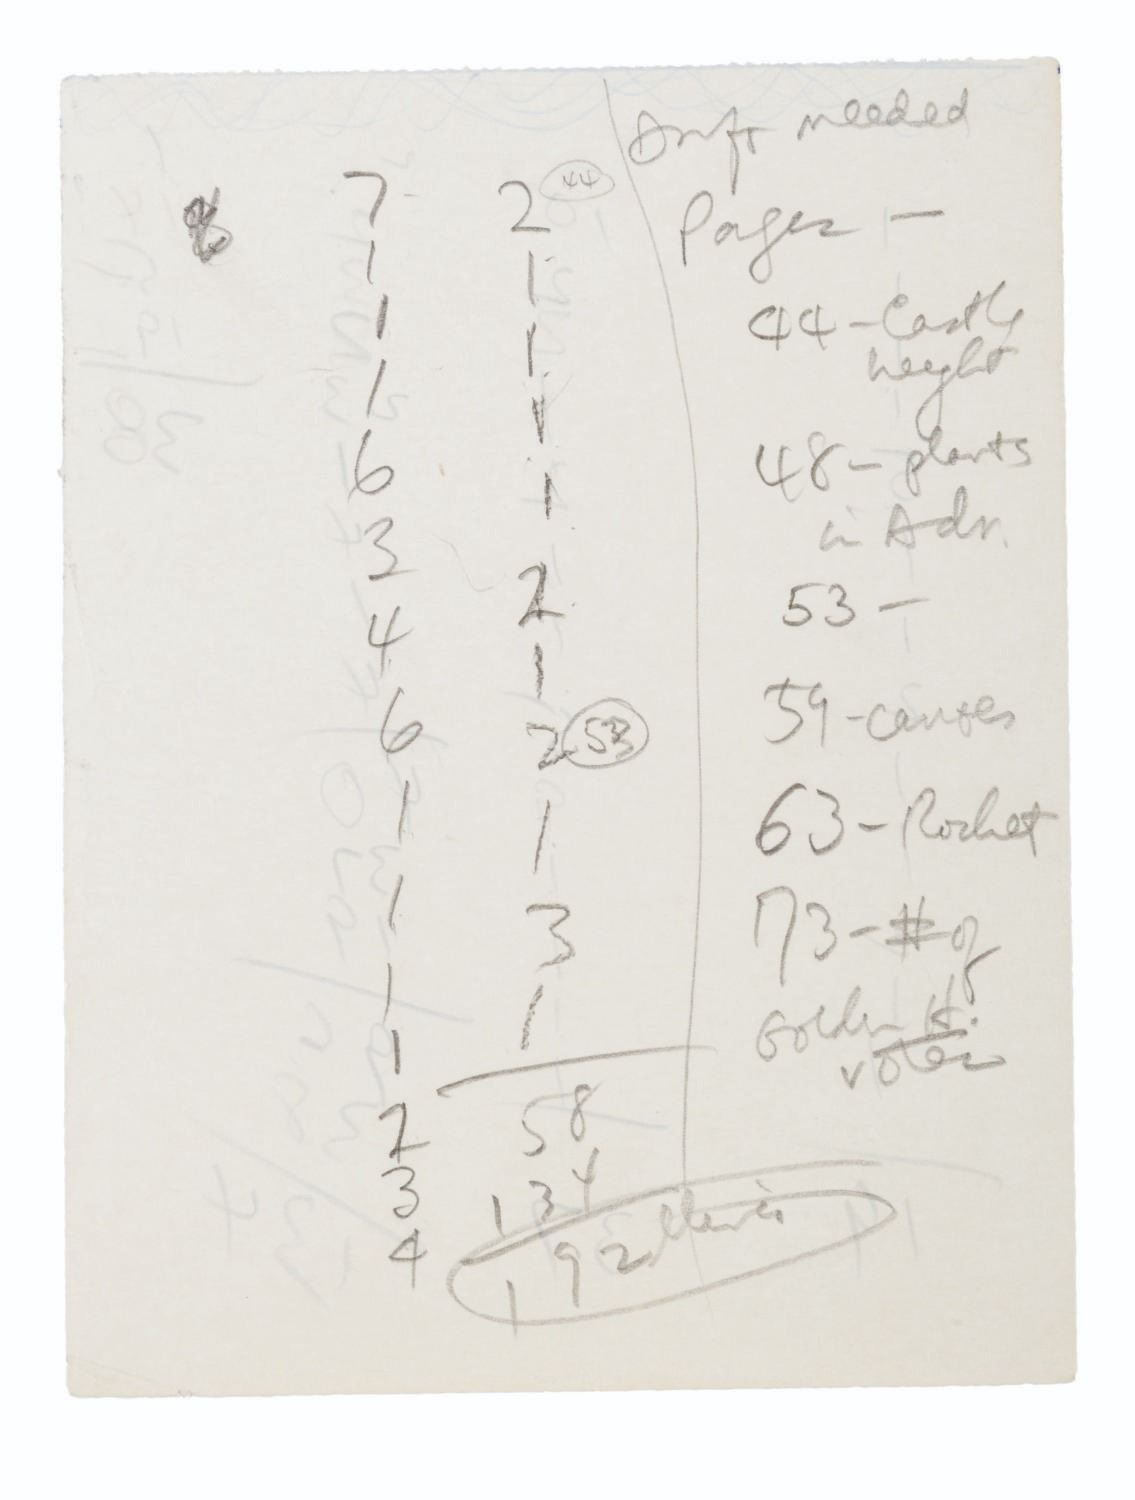 7
1
1
1
6
3
4
6
1
1
1
1
2
3
4
2 44
1
1
1
1
2
1
2 53
1
3
1
58
134
192
needed
Pages —
44 - Castle
height
48 - plants
in Adv.
53 —
59 - canoes
63 - Rocket
73 - # of
Golden H.
votes